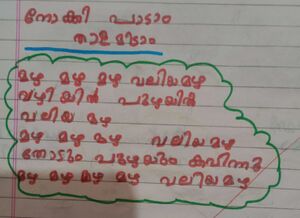 നോക്കി പാടാം
താളമിടാം
മഴ മഴ മഴ വലിയമഴ
വഴിയിൽ പുഴയിൽ
വലിയ മഴ
മഴ മഴ മഴ വലിയമഴ
തോടും പുഴയും കവിഞ്ഞു
മഴ മഴ മഴ മഴ വലിയമഴ